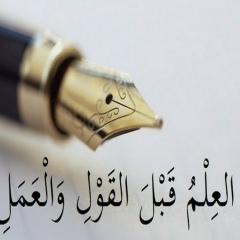 العِلْمُ قَبْلَ القَوْلِ وَالْعَمَلِ